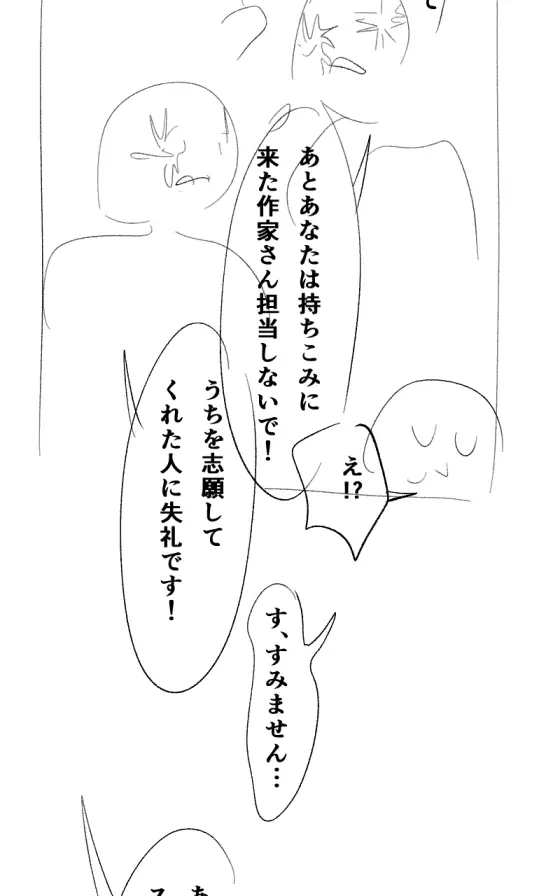 て
あとあなたは持ちこみに
来た作家さん担当しないで！
え!?
うちを志願して
くれた人に失礼です！
す、すみません…
あ
ス